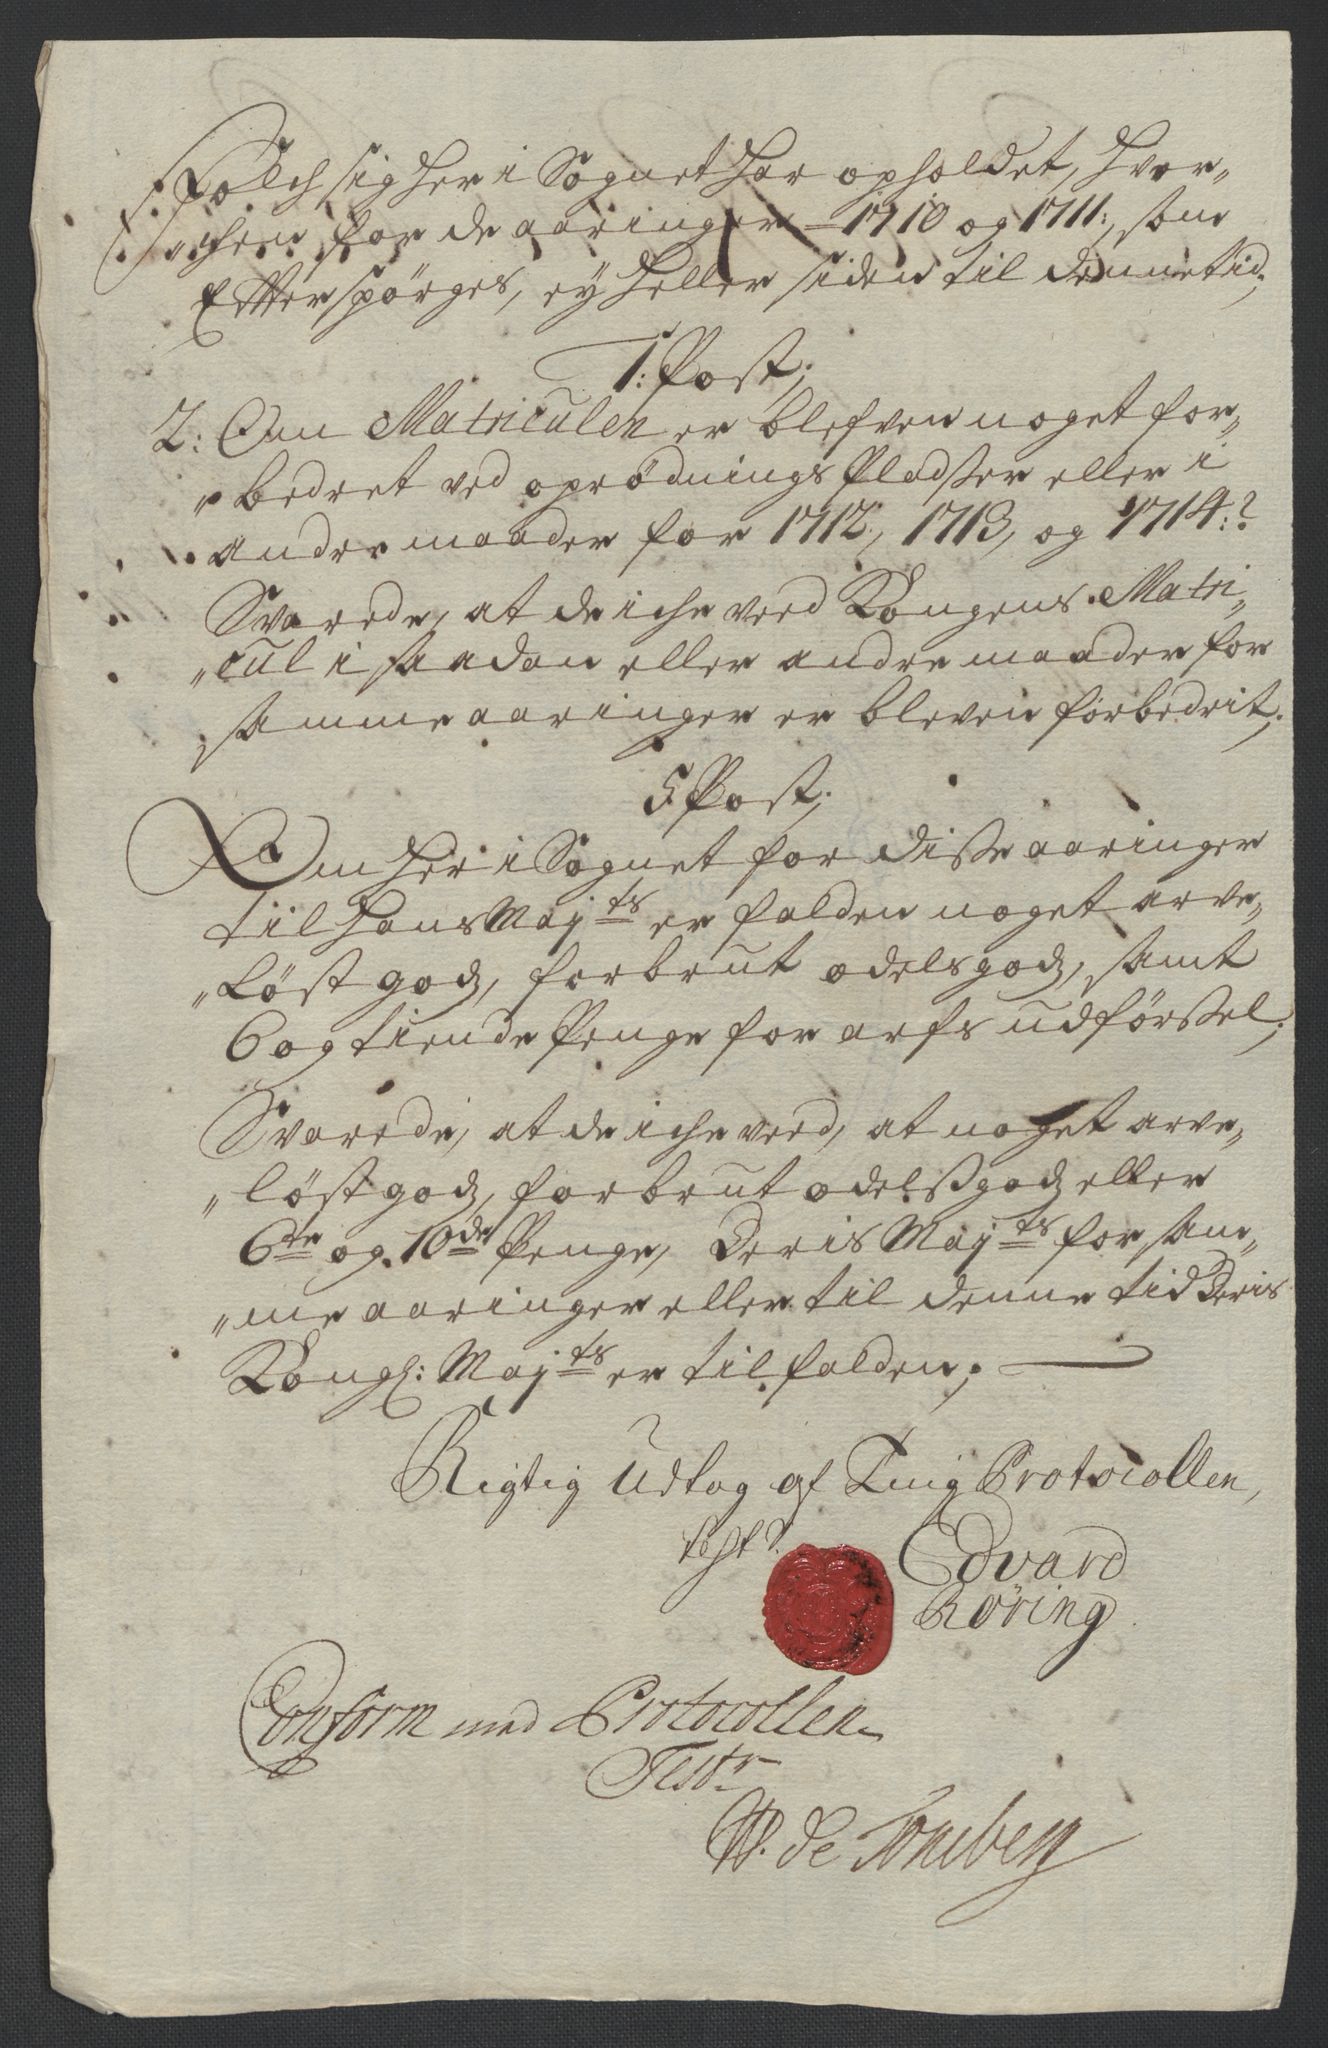 Folch sig her i Sognet har opholdet, hvor„
„chen for de aaringer 1710 og 1711:, som
Etterspörges, ey heller siden til denne tid;
1: Post;
2: Om Matriculen er blefven noget for„
„bedret ved oprödnings Pladser eller i
andre maader for 1712, 1713, og 1714:?
Svarede, at de iche veed Kongens Matri„
„cul i saadan eller andre maader for
samme aaringer er bleven forbedrit;
5 Post;
Om her i Sognet for disse aaringer
til hans Maj:ts er falden noget arve„
„löst godz, forbrut odelsgodz, samt
6 og tiende Penge for arfs udförssel;
Svarede, at de iche veed, at noget arve„
„löst godz, forbrut odelssgodz eller
6te og 10de Penge, Deris Maj:ts for sam„
„me aaringer eller til denne tid Deris
Kongl: Maj:ts er tilfalden;
Rigtig Udtog af Ting Protocollen,
Edvard
Röring
Conform med Protocollen
Test:r
W. de Tonsberg